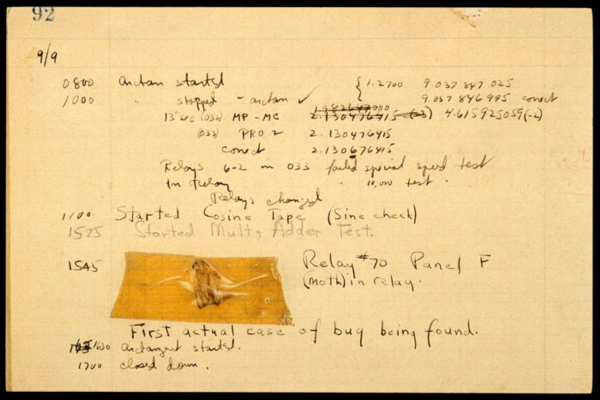 92
9/9
0800 antan started { 1.2700 9.037 847 025
1000 " stopped - antan ✓ 9.037 846 995 conect
13"uc (032) MP - MC 2.130476415 4.615925059(-2)
(033) PRO 2 2.130476415
conect 2.130676415
Relays 6-2 in 033 failed special speed test
In Relay " 10,000 test.
Relays changed
1100 Started Cosine Tape (Sine check)
1525 Started Mult + Adder Test.
1545 Relay #70 Panel F
(moth) in relay.
First actual case of bug being found.
1630 antangent started.
1700 closed down.